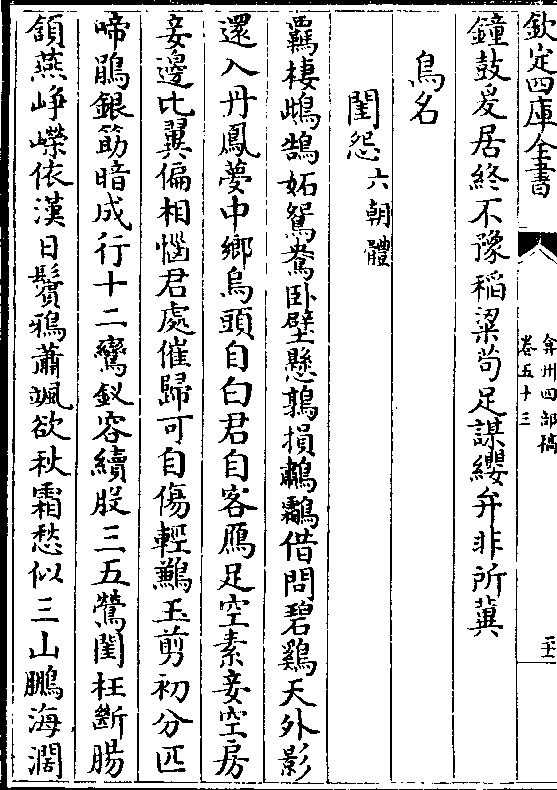 欽定四庫全書
弇州四部稿
卷五十三
二十一
鐘鼓爰居終不豫稻粱茍足謀纓弁非所冀
鳥名
閨怨六朝體
羈棲鵾鵠妬鴛鴦卧壁懸鶉損鸘借問碧鷄天外影
還入丹鳳夢中鄉烏頭自白君自客鴈足空素妾空房
妾邊比翼偏相惱君處催歸可自傷輕鷀玉剪初分匹
啼鵑銀筯暗成行十二鸞釵容續股三五鶯閨枉斷腸
頷燕崢嶸依漢日鬢鴉蕭颯欲秋霜愁似三山鵬海濶